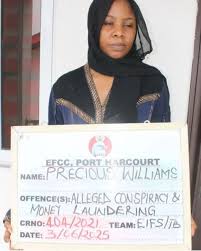 EFCC, PORT HARCOURT
NAME: PRECIOUS WILLIAMS
OFFENCE(S): ALLEGED CONSPIRACY &
MONEY LAUNDERING
CRNO: 404/2021 TEAM: EIFS/TB
DATE: 3/06/2025